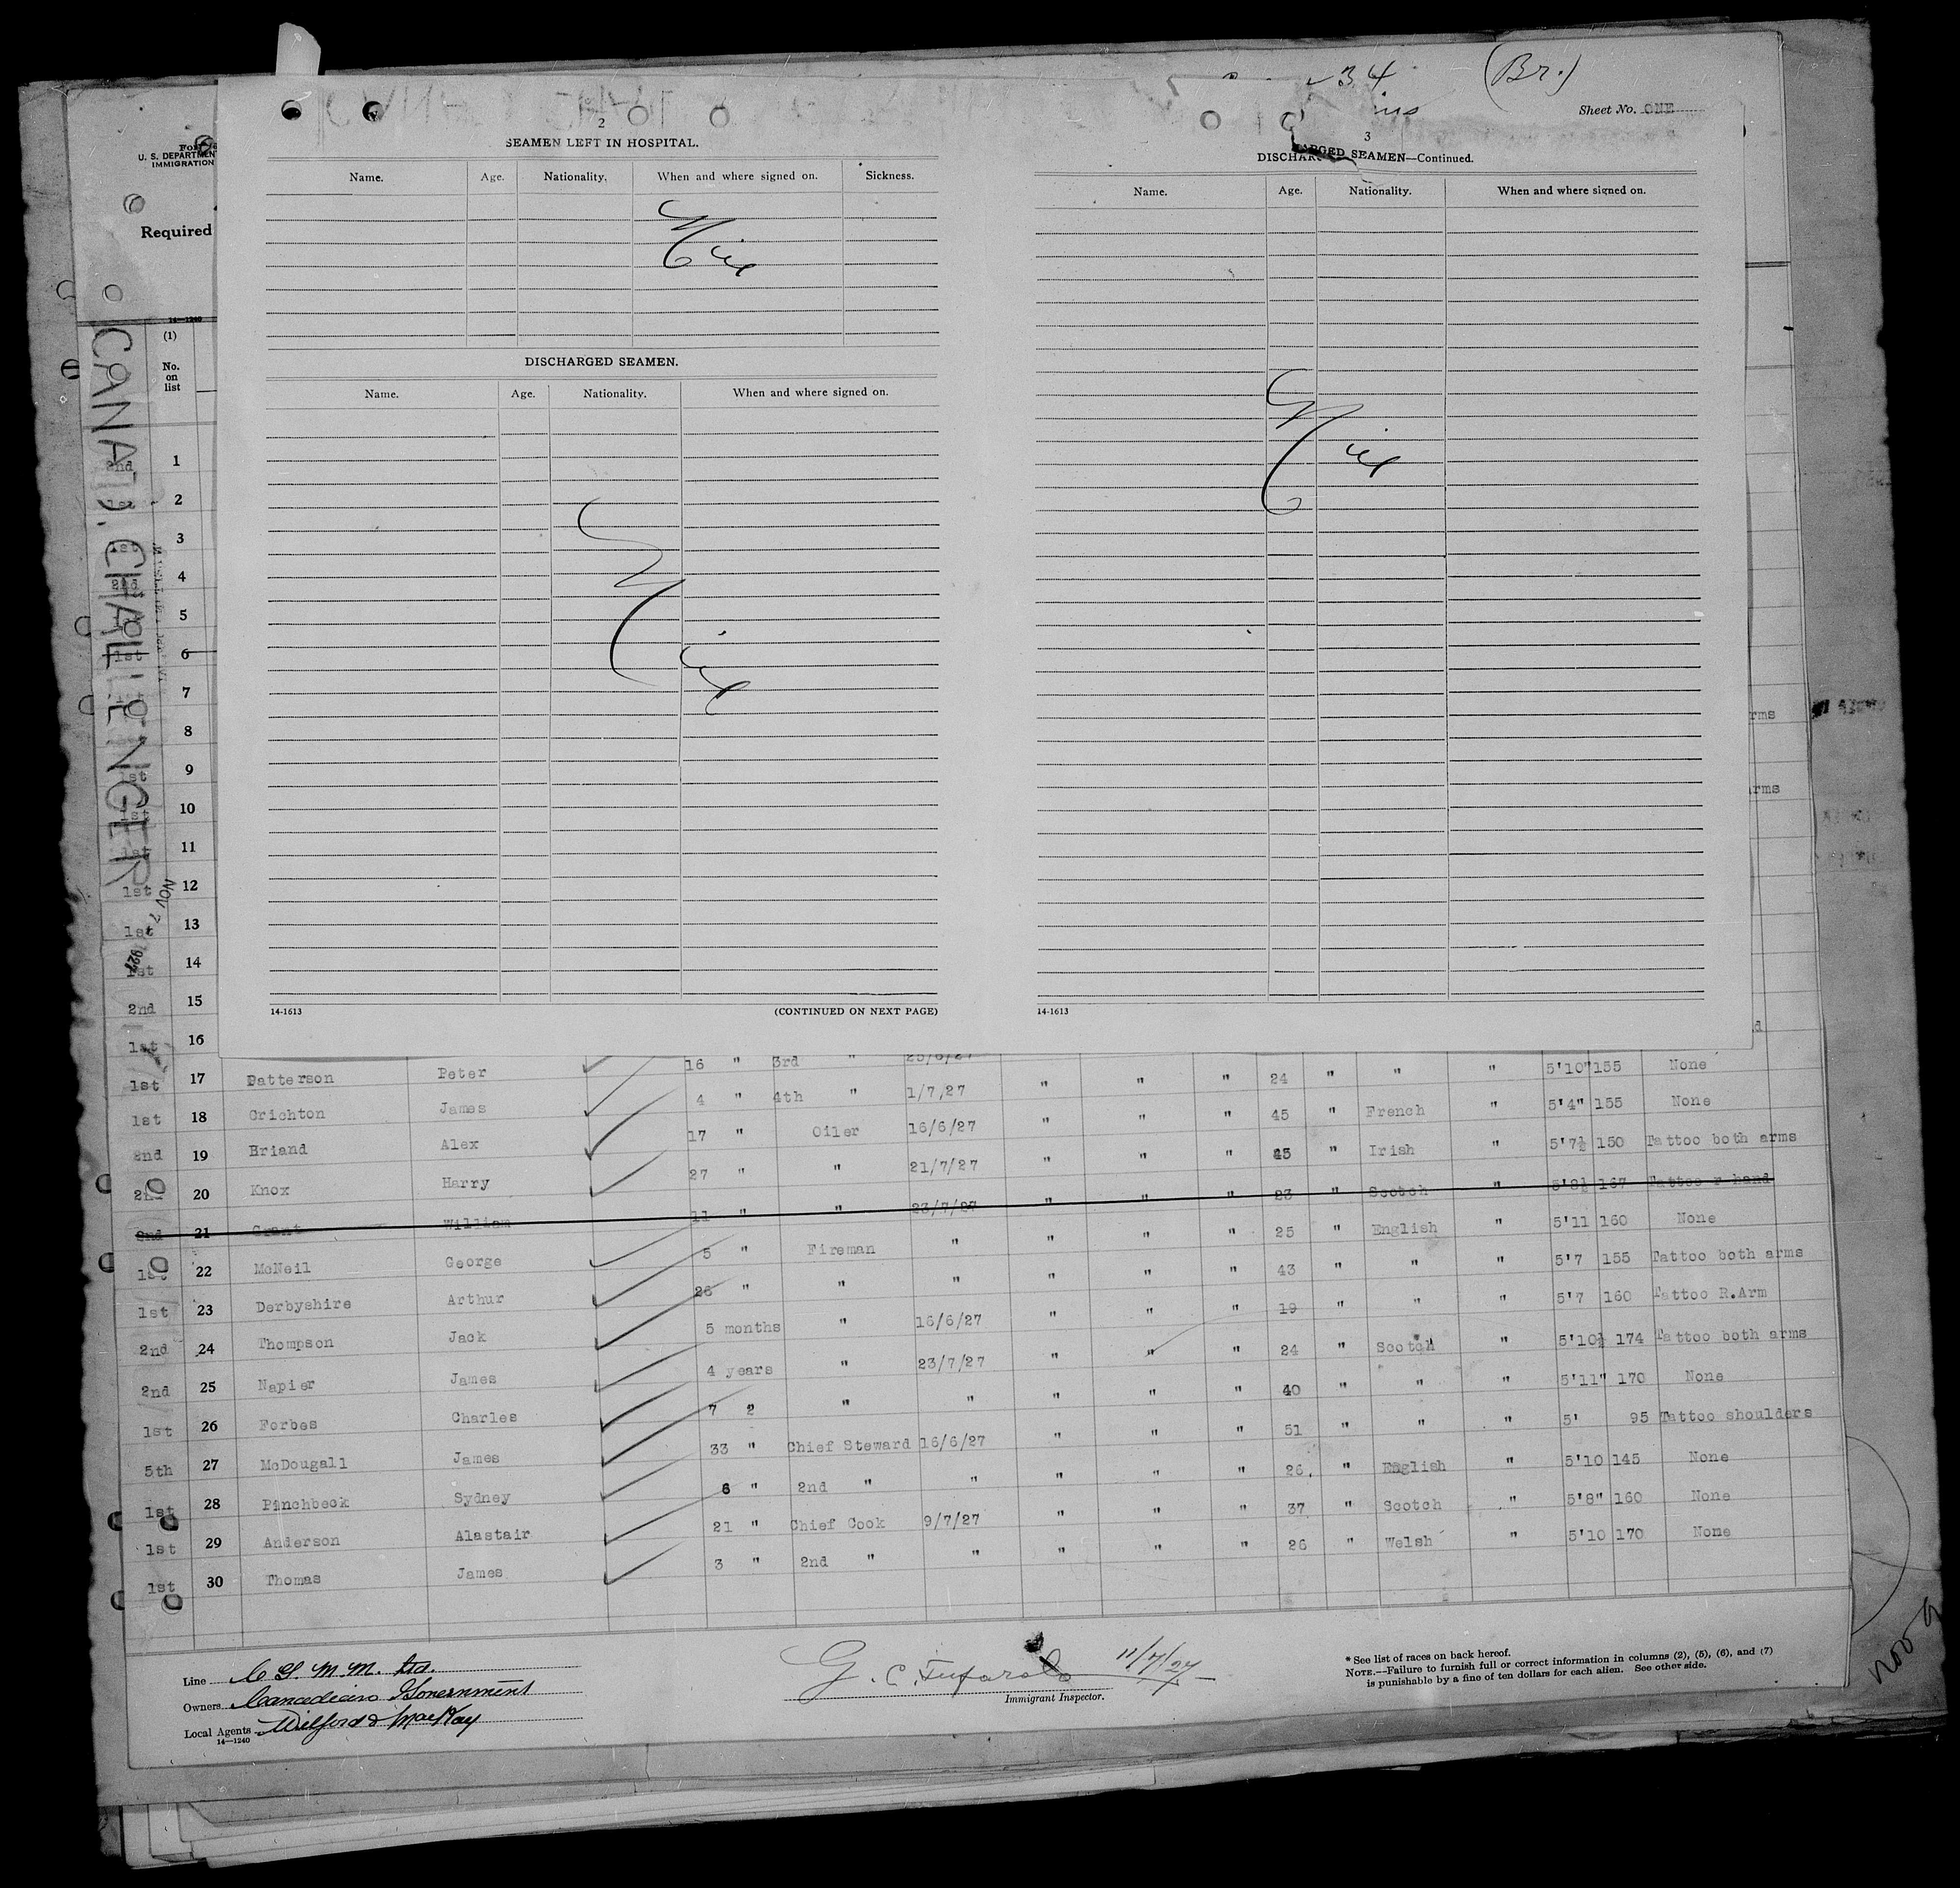 34 (Br.)
Sheet No. ONE
U. S. DEPARTMENT
IMMIGRATION
Required
14—1240
(1)
No. on list
CANAD. CHALLENGER
NOV 7 1927
2
SEAMEN LEFT IN HOSPITAL.
Name. Age. Nationality. When and where signed on. Sickness.
Nil
DISCHARGED SEAMEN.
Name. Age. Nationality. When and where signed on.
Nil
14-1613 (CONTINUED ON NEXT PAGE)
3
DISCHARGED SEAMEN—Continued.
Name. Age. Nationality. When and where signed on.
Nil
14-1613
2nd 1
2
1st 3
2nd 4
5
1st 6
7
8
1st 9
10
1st 11
1st 12
1st 13
1st 14
2nd 15
1st 16
1st 17 Patterson Peter 16 " 3rd " 25/6/27
1st 18 Crichton James 4 " 4th " 1/7,27 " " " 24 " " " 5'10" 155 None
2nd 19 Briand Alex 17 " Oiler 16/6/27 " " " 45 " French " 5'4" 155 None
2nd 20 Knox Harry 27 " " 21/7/27 " " " 45 " Irish " 5'7½ 150 Tattoo both arms
2nd 21 Grant William 11 " " 23/7/27 " " " 23 " Scotch " 5'8½ 167 Tattoo r hand
1st 22 McNeil George 5 " Fireman " " " " 25 " English " 5'11 160 None
1st 23 Derbyshire Arthur 26 " " " " " " 43 " " " 5'7 155 Tattoo both arms
2nd 24 Thompson Jack 5 months " 16/6/27 " " " 19 " " " 5'7 160 Tattoo R.Arm
2nd 25 Napier James 4 years " 23/7/27 " " " 24 " Scotch " 5'10½ 174 Tattoo both arms
1st 26 Forbes Charles 7 2 " " " " " 40 " " " 5'11" 170 None
5th 27 McDougall James 33 " Chief Steward 16/6/27 " " " 51 " " " 5' 95 Tattoo shoulders
1st 28 Pinchbeck Sydney 6 " 2nd " " " " " 26. " English " 5'10 145 None
1st 29 Anderson Alastair 21 " Chief Cook 9/7/27 " " " 37 " Scotch " 5'8" 160 None
1st 30 Thomas James 3 " 2nd " " " " " 26 " Welsh " 5'10 170 None
Line C G. M. M. Ltd.
Owners Canadian Government
Local Agents Wilford & MacKay
14—1240
11/7/27
Immigrant Inspector.
* See list of races on back hereof.
NOTE.—Failure to furnish full or correct information in columns (2), (5), (6), and (7)
is punishable by a fine of ten dollars for each alien. See other side.